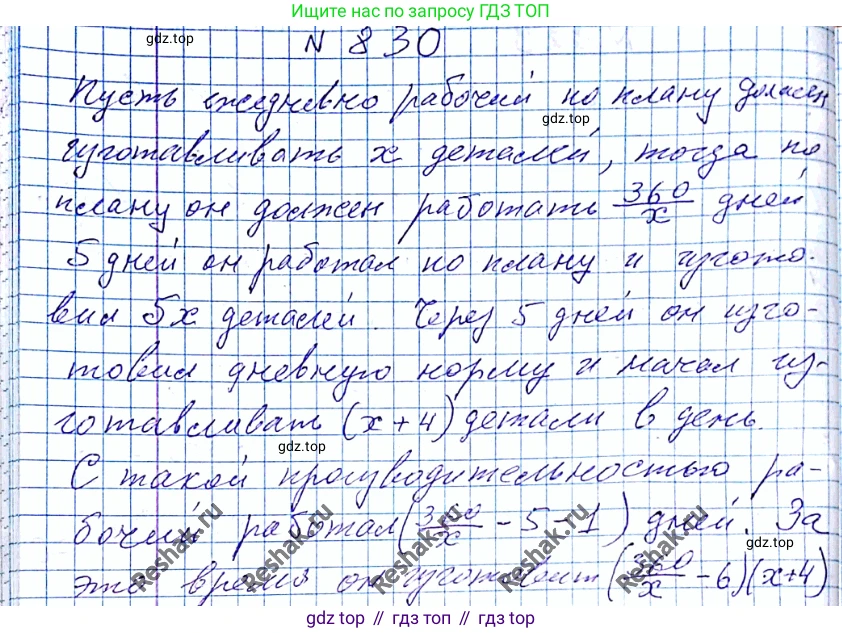 Ищите нас по запросу ГДЗ ТОП
gdz.top
N 830
Пусть ежедневно рабочий по плану должен
gdz.top
изготавливать x деталей, тогда по
плану он должен работать 360/x дней
gdz.top
5 дней он работал по плану и изгото-
вил 5x деталей. Через 5 дней он изго-
товил дневную норму и начал из-
готавливать (x+4) детали в день.
gdz.top
С такой производительностью ра-
бочий работал (360/x - 5 - 1) дней. За
gdz.top
это время он изготовит (360/x - 6)(x+4)
Reshak.ru
Reshak.ru
Reshak.ru
Reshak.ru
Reshak.ru
gdz.top // гдз.топ // gdz.top